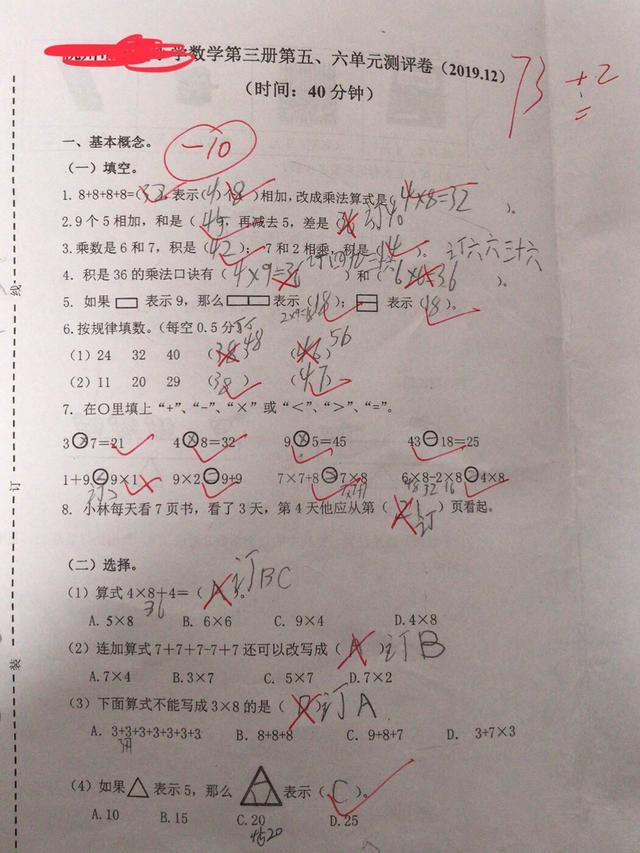 学数学第三册第五、六单元测评卷（2019.12）
73 +2
（时间：40 分钟）
一、基本概念。 -10
（一）填空。
1. 8+8+8+8=(32)表示(4)个(8)相加，改成乘法算式是(4×8=32)。
2.9 个 5 相加，和是(45)，再减去 5，差是( )订40
3.乘数是 6 和 7，积是(42)； 7 和 2 相乘，积是(14)。订六六三十六
4. 积是 36 的乘法口诀有(4×9=36)和(6×6=36)。
5. 如果 表示 9，那么 表示(18)； 表示(18)。
2×9=18
6.按规律填数。（每空 0.5 分）
（1）24 32 40 (38)48 (46)56
（2）11 20 29 (38) (47)
7. 在○里填上“+”、“-”、“×”或“<”、“>”、“=”。
3×7=21 4×8=32 9×5=45 43-18=25
1+9 9×1 9×2=9+9 7×7+8>7×8 6×8-2×8=4×8
订>
8. 小林每天看 7 页书，看了 3 天，第 4 天他应从第( )页看起。
订
（二）选择。
（1）算式 4×8+4=(A)。订BC
36
A. 5×8 B. 6×6 C. 9×4 D.4×8
（2）连加算式 7+7+7-7+7 还可以改写成(A)订B
A.7×4 B.3×7 C. 5×7 D.7×2
（3）下面算式不能写成 3×8 的是(D)订A
A. 3+3+3+3+3+3+3 B. 8+8+8 C. 9+8+7 D. 3+7×3
（4）如果 表示 5，那么 表示(C)。
A.10 B.15 C.20 D.25
线
订
装